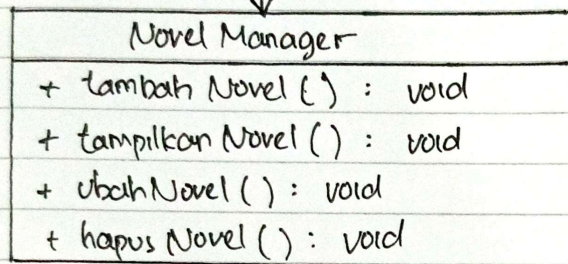 Novel Manager
+ tambah Novel ( ) : void
+ tampilkan Novel ( ) : void
+ ubah Novel ( ) : void
+ hapus Novel ( ) : void